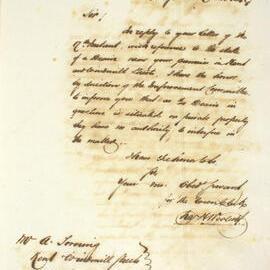 Sir,
In reply to your letter of the
7th Instant, with reference to the state
of a Drain near your premises in Kent
and Windmill Streets, I have the honor,
by direction of the Improvement Committee
to inform you that as the Drain in
question is situated on private property
they have no authority to interfere in
the matter.
I have the honor to be
Sir
Your Mo. Obed. Servant
in the Town Clerk
Mr A.
Kent & Windmill Streets